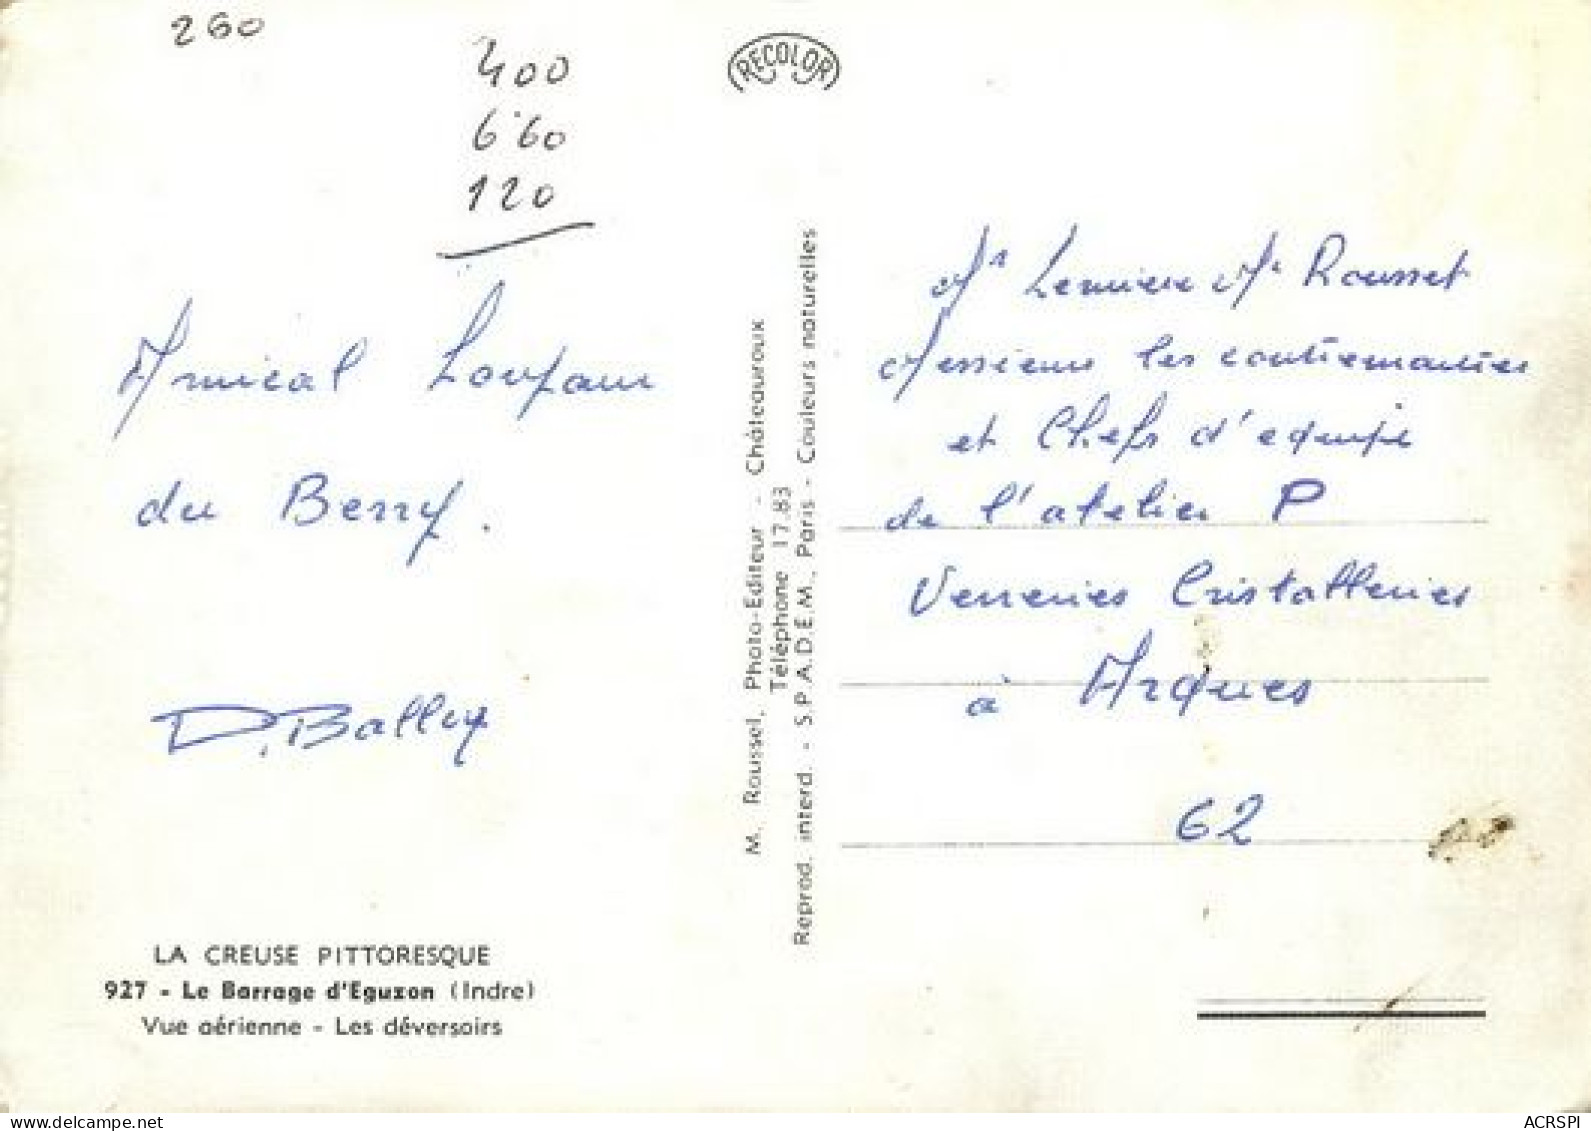 260
400
660
120
RECOLOR
Amical Souvenir
du Berry.
D. Bailly
LA CREUSE PITTORESQUE
927 - Le Barrage d'Eguzon (Indre)
Vue aérienne - Les déversoirs
M. Roussel, Photo-Editeur - Châteauroux
Téléphone 17.83
Reprod. interd. - S.P.A.D.E.M., Paris - Couleurs naturelles
Mr Lemiere Mr Rousset
Messieurs les contremaitres
et Chefs d'equipe
de l'atelier P
Verreries Cristalleries
à Arques
62
ACRSPI